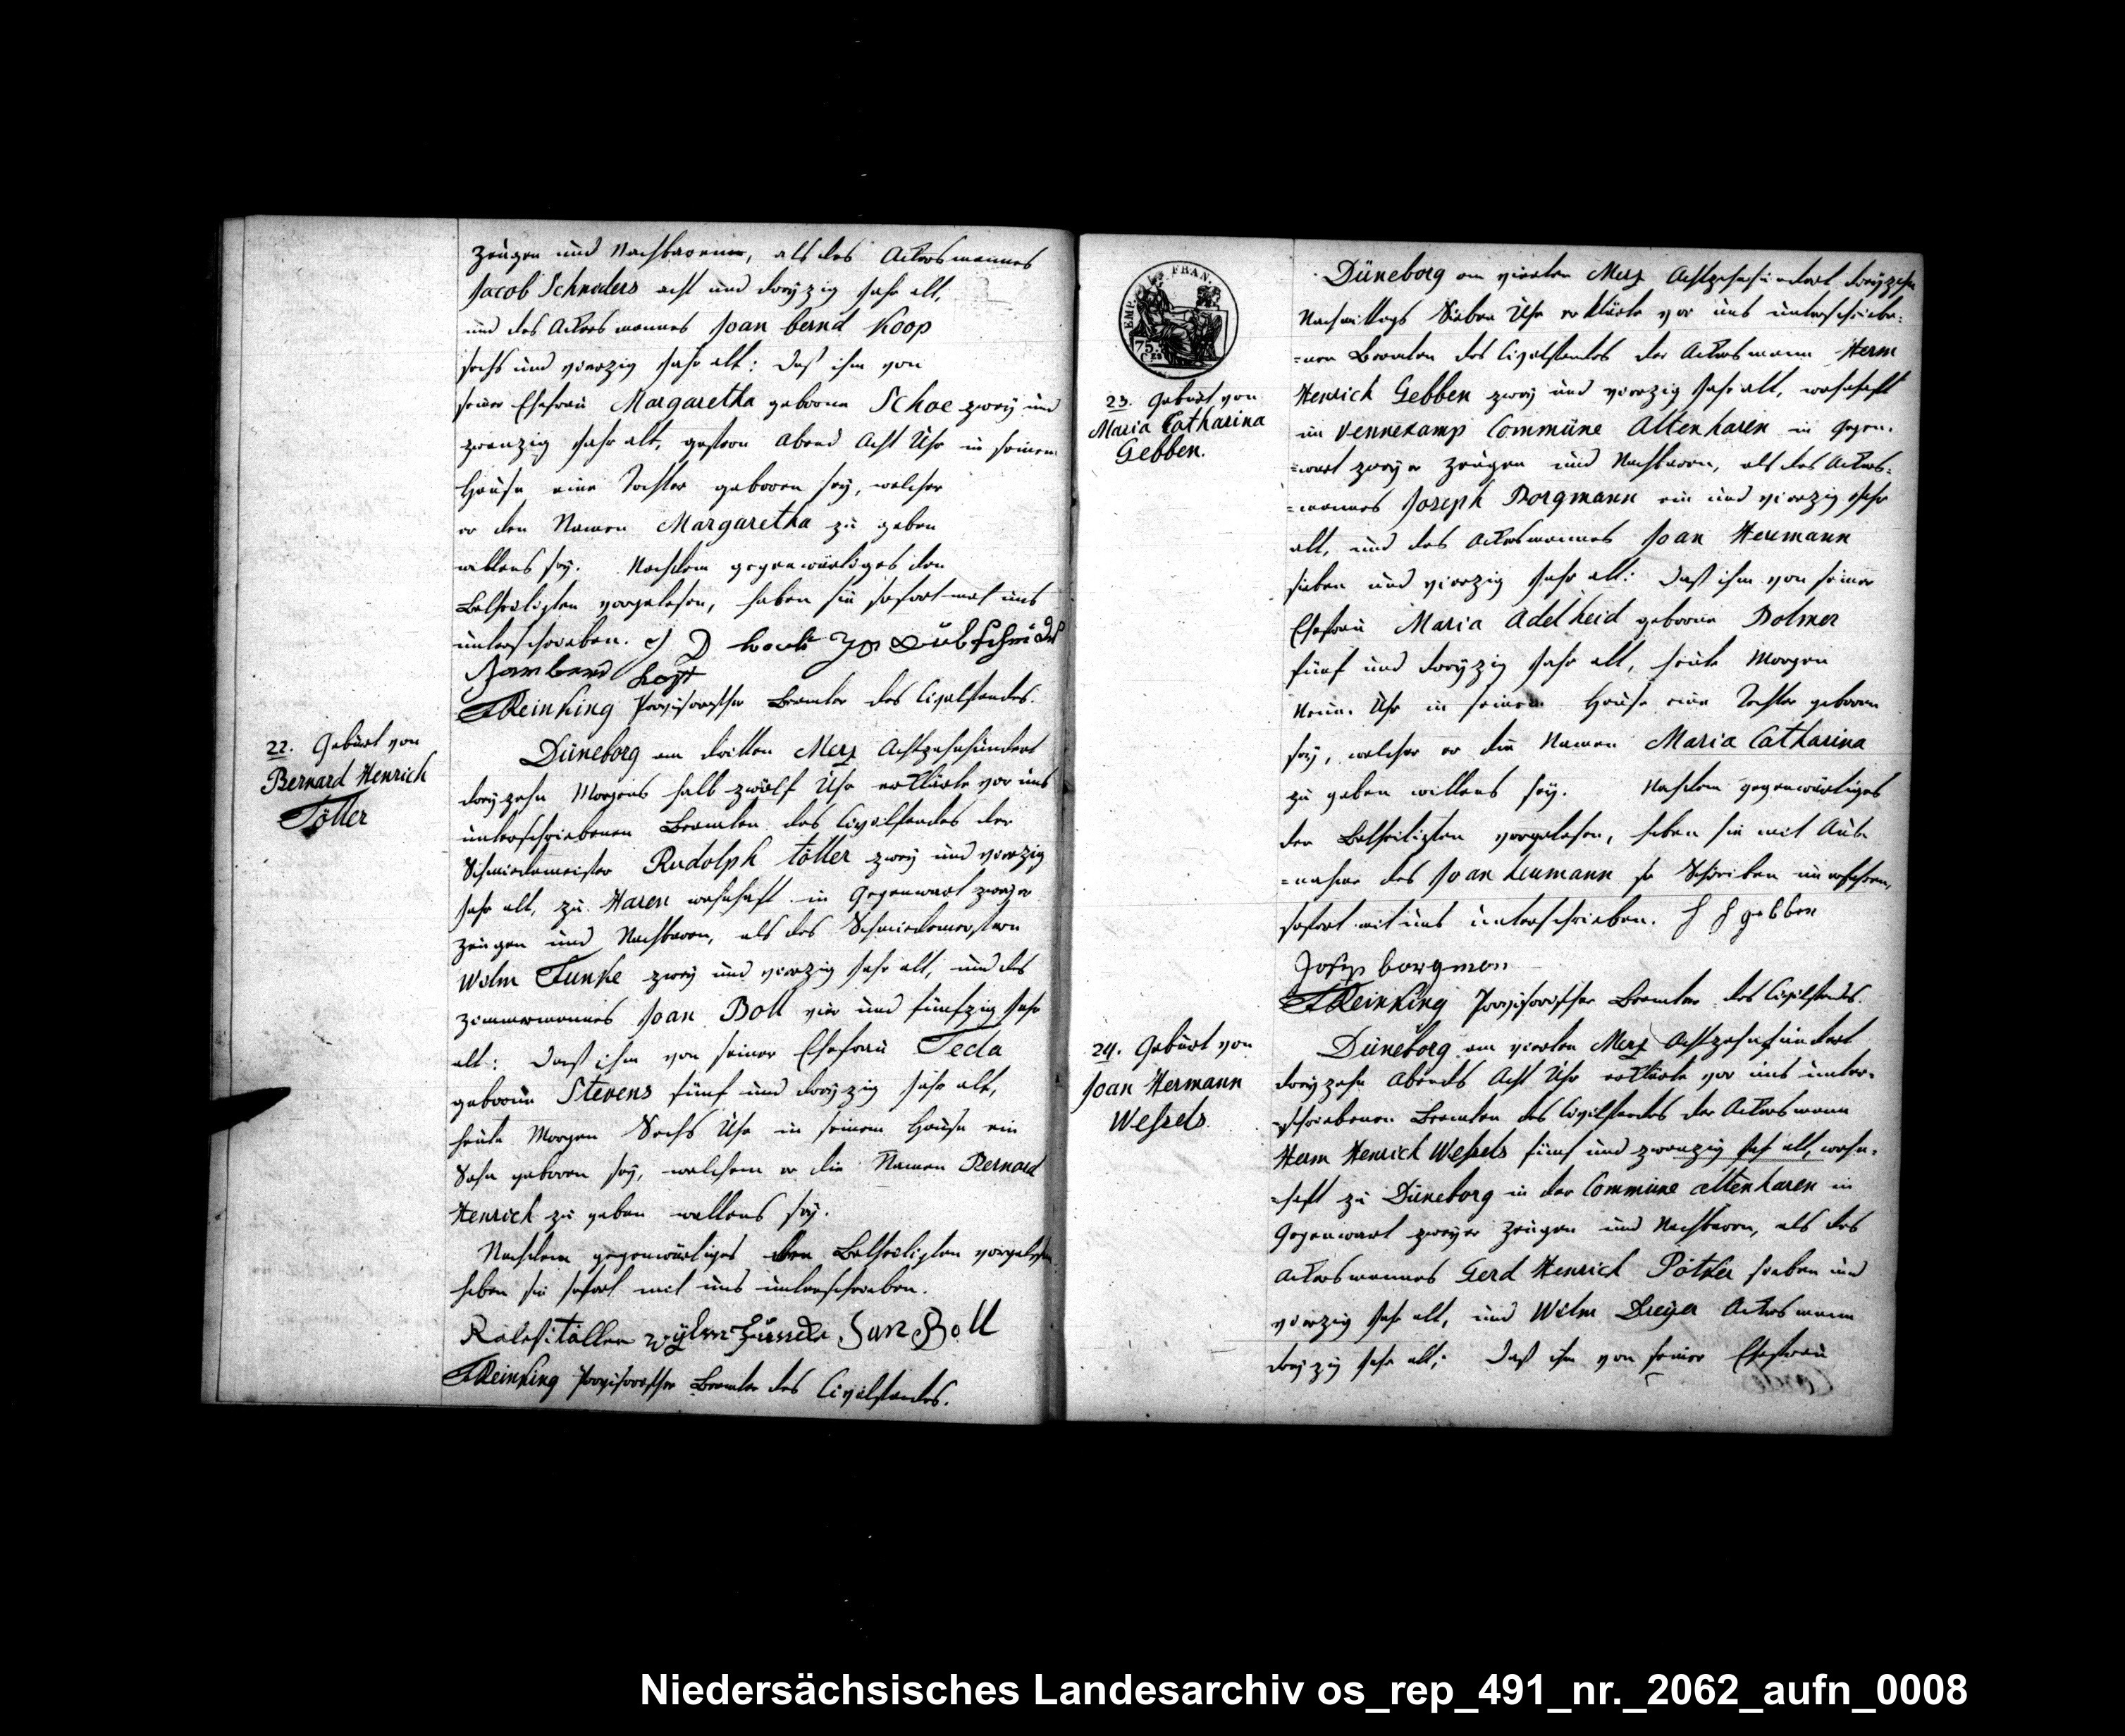 Zeugen und Nachbaren, als des Ackersmannes
Jacob Schnieders acht und dreyzig Jahr alt,
und des Ackersmannes Joan bernd Koop
sechs und vierzig Jahr alt: Daß ihm von
seiner Ehefrau Margaretha geborne Schae zwey und
zwanzig Jahr alt, gestern Abend Acht Uhr in seinem
Hause eine Tochter geboren sey, welcher
er den Namen Margaretha zu geben
willens sey. Nachdem gegenwärtiges den
Betheiligten vorgelesen, haben sie sofort mit uns
unterschrieben.
Reinking Provisorischer Beamter des Civilstandes.
22. Geburt von
Bernard Henrich
Töller
Düneborg am dritten Merz Achtzehnhundert
dreyzehn Morgens halb zwölf Uhr erklärte vor uns
unterschriebenen Beamten des Civilstandes der
Schmiedemeister Rudolph Töller zwey und vierzig
Jahr alt, zu Haren wohnhaft in Gegenwart zweyer
Zeugen und Nachbaren, als des Schmiedemeistern
Wilm Funke zwey und vierzig Jahr alt, und des
Zimmermannes Joan Boll vier und fünfzig Jahr
alt: Daß ihm von seiner Ehefrau Tecla
geborne Stevens fünf und dreyzig Jahr alt,
heute Morgen Sechs Uhr in seinem Hause ein
Sohn geboren sey, welchem er die Namen Bernard
Henrich zu geben willens sey.
Nachdem gegenwärtiges den Betheiligten vorgelesen
haben sie sofort mit uns unterschrieben.
Jan Boll
Reinking Provisorischer Beamter des Civilstandes.
EMP. FRAN.
75.
23. Geburt von
Maria Catharina
Gebben.
Düneborg am vierten Merz Achtzehnhundert dreyzehn
Nachmittags Sieben Uhr erklärte vor uns unterschriebe-
=nen Beamten des Civilstandes der Ackersmann Herm
Henrich Gebben zwey und vierzig Jahr alt, wohnhaft
im Vennekamp Commüne Altenharen in Gegen-
=wart zweyer Zeugen und Nachbaren, als des Ackers=
=mannes Joseph Borgmann ein und vierzig Jahr
alt, und des Ackersmannes Joan
sieben und vierzig Jahr alt: Daß ihm von seiner
Ehefrau Maria Adelheid geborne Bolmer
fünf und dreyzig Jahr alt, heute Morgen
Neun Uhr in seinem Hause eine Tochter geboren
sey, welcher er die Namen Maria Catharina
zu geben willens sey. Nachdem gegenwärtiges
den Betheiligten vorgelesen, haben sie mit Aus-
=nahme des Joan so Schreiben unerfahren,
sofort mit uns unterschrieben. H H gebben
Josep borgman
Reinking Provisorischer Beamter des Civilstandes.
24. Geburt von
Joan Hermann
Weßels.
Düneborg am vierten Merz Achtzehnhundert
dreyzehn Abends Acht Uhr erklärte vor uns unter-
=schriebenen Beamten des Civilstandes der Ackersmann
Herm Henrich Weßels fünf und zwanzig Jahr alt, wohn-
=haft zu Düneborg in der Commüne Altenharen in
Gegenwart zweyer Zeugen und Nachbaren, als des
Ackersmannes Gerd Henrich Pötker sieben und
vierzig Jahr alt, und Wilm Dreyer Ackersmann
dreyzig Jahr alt; Daß ihm von seiner Ehefrau
Niedersächsisches Landesarchiv os_rep_491_nr._2062_aufn_0008